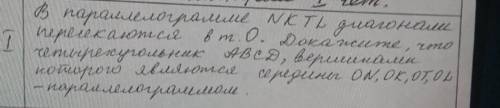 I
В параллелограмме NKTL диагонали
пересекаются в т. О. Докажите, что
четырехугольник ABCD, вершинами
которого являются середины ON, OK, OT, OL
- параллелограммом.